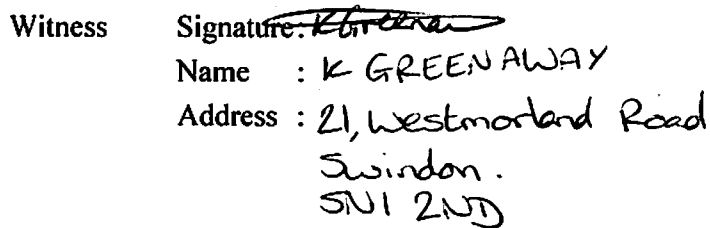 Witness Signature: KGreenaw
Name : K GREENAWAY
Address : 21, Westmorland Road
Swindon.
SN1 2ND